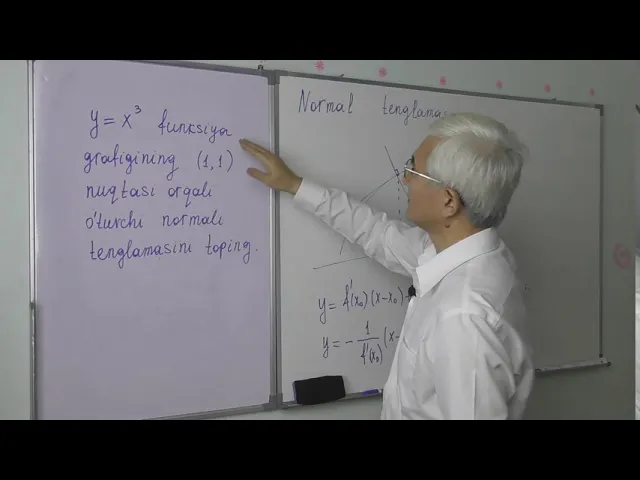 y = x³ funksiya
grafigining (1,1)
nuqtasi orqali
o'tuvchi normali
tenglamasini toping.
Normal
y = f'(x₀)(x-x₀)
y = - 1/f'(x₀) (x-